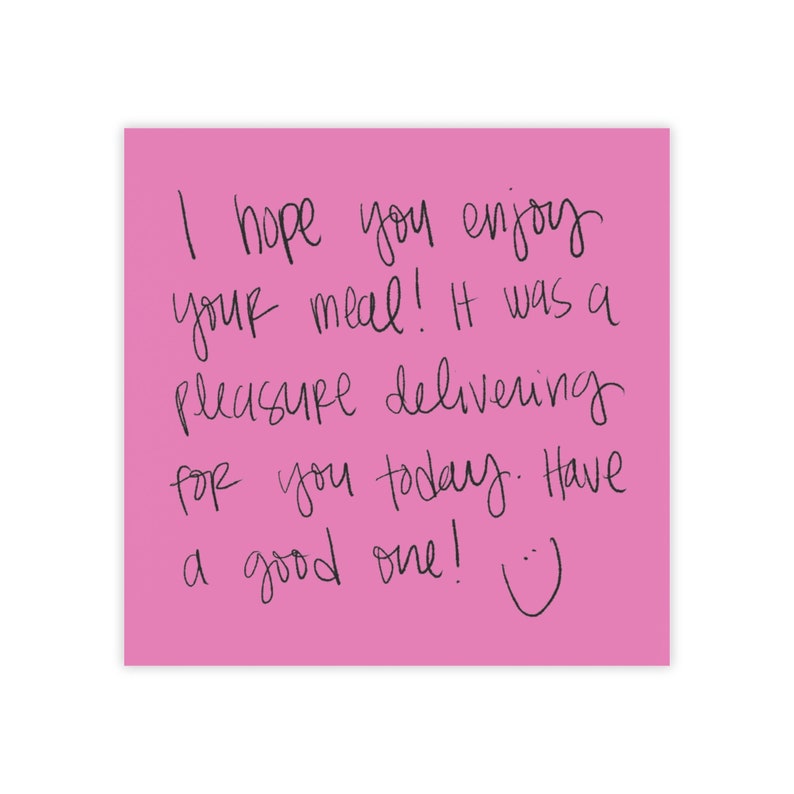 I hope you enjoy
your meal! It was a
pleasure delivering
for you today. Have
a good one! :)